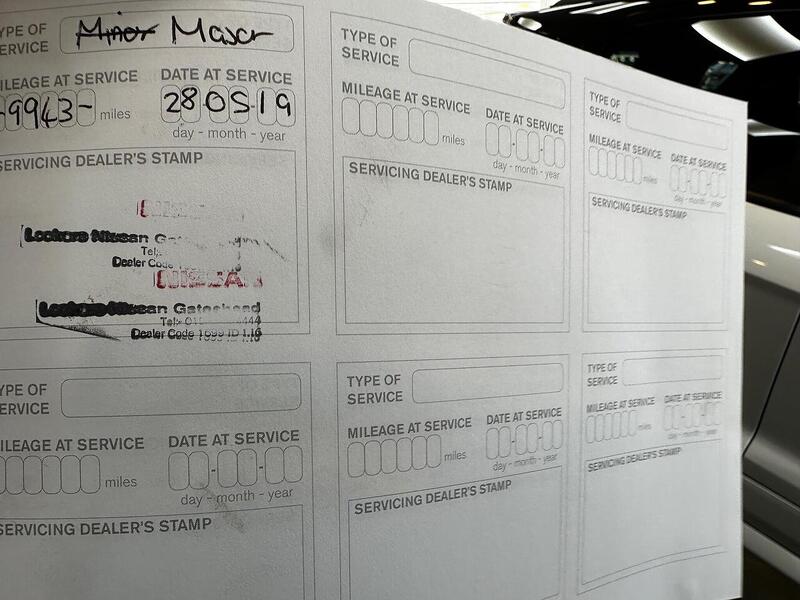 TYPE OF
SERVICE
Minor Major
MILEAGE AT SERVICE
-9943- miles
DATE AT SERVICE
28 05 19
day - month - year
SERVICING DEALER'S STAMP
Lookers Nissan
Tel:
Dealer Code
NISSAN
Lookers Nissan Gateshead
Tel:-
Dealer Code
TYPE OF
SERVICE
MILEAGE AT SERVICE
miles
DATE AT SERVICE
day - month - year
SERVICING DEALER'S STAMP
TYPE OF
SERVICE
MILEAGE AT SERVICE
miles
DATE AT SERVICE
day - month - year
SERVICING DEALER'S STAMP
TYPE OF
SERVICE
MILEAGE AT SERVICE
miles
DATE AT SERVICE
day - month - year
SERVICING DEALER'S STAMP
TYPE OF
SERVICE
MILEAGE AT SERVICE
miles
DATE AT SERVICE
day - month - year
SERVICING DEALER'S STAMP
TYPE OF
SERVICE
MILEAGE AT SERVICE
miles
DATE AT SERVICE
day - month - year
SERVICING DEALER'S STAMP